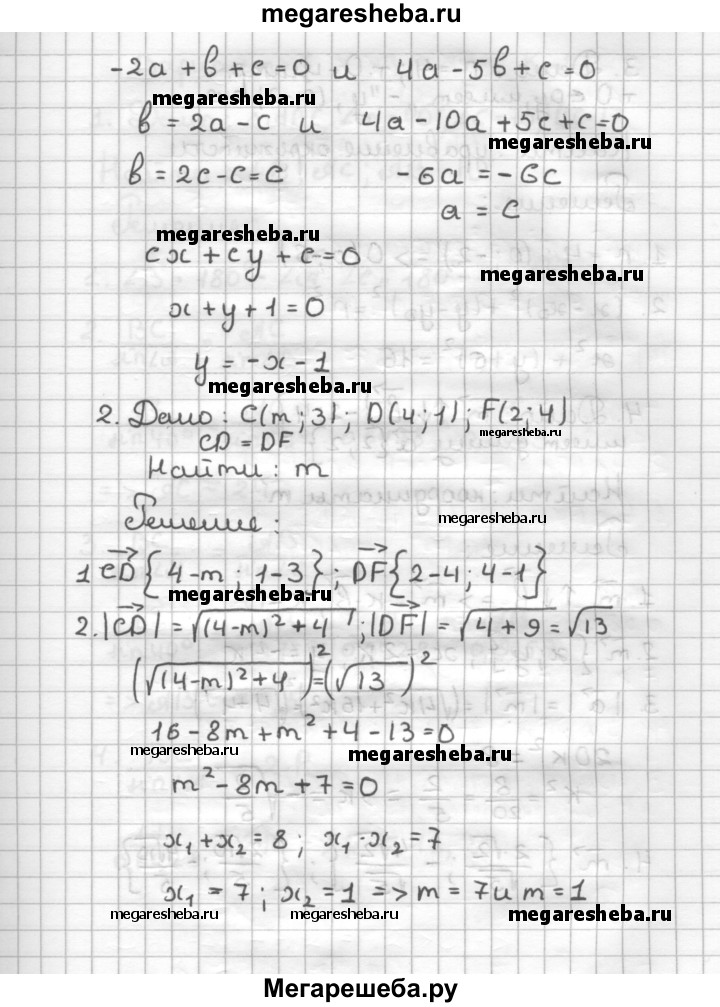 megaresheba.ru
-2a + b + c = 0 и 4a - 5b + c = 0
megaresheba.ru
b = 2a - c и 4a - 10a + 5c + c = 0
megaresheba.ru
b = 2c - c = c -6a = -6c
a = c
megaresheba.ru
cx + cy + c = 0
megaresheba.ru
x + y + 1 = 0
y = -x - 1
megaresheba.ru
2. Дано: C(m; 3); D(4; 1); F(2; 4)
megaresheba.ru
CD = DF
Найти: m
Решение:
megaresheba.ru
1 \overrightarrow{CD}{4-m; 1-3}; \overrightarrow{DF}{2-4; 4-1}
megaresheba.ru
2. |\overrightarrow{CD}| = √((4-m)² + 4); |\overrightarrow{DF}| = √(4 + 9) = √13
(√((4-m)² + 4))² = (√13)²
16 - 8m + m² + 4 - 13 = 0
megaresheba.ru megaresheba.ru
m² - 8m + 7 = 0
x₁ + x₂ = 8; x₁ · x₂ = 7
x₁ = 7; x₂ = 1 => m = 7 и m = 1
megaresheba.ru megaresheba.ru megaresheba.ru
Мегарешеба.ру